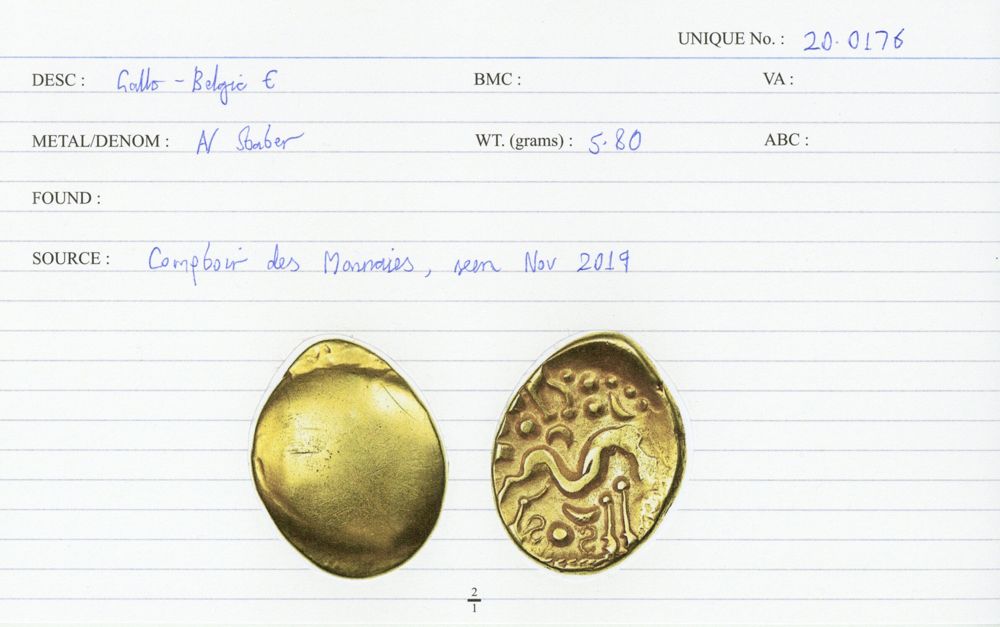 UNIQUE No. : 20.0176
DESC : Gallo-Belgic E BMC : VA :
METAL/DENOM : AV Stater WT. (grams) : 5.80 ABC :
FOUND :
SOURCE : Comptoir des Monnaies, seen Nov 2019
2
1